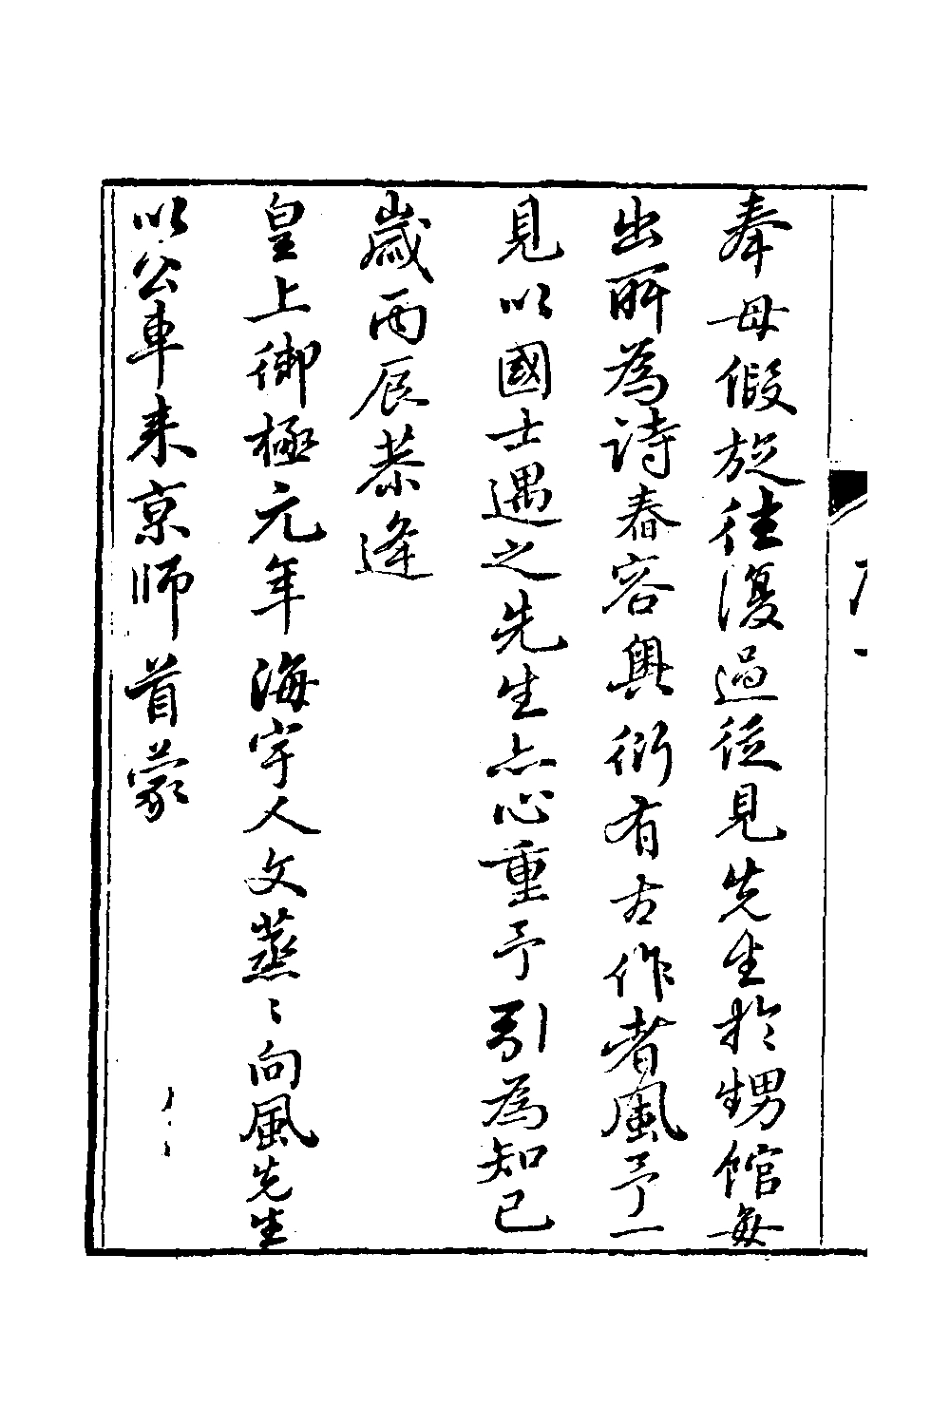 奉母假旋往復過從見先生於甥館每
出所為詩舂容輿衍有古作者風予一
見以國士遇之先生亦心重予引為知己
歲丙辰恭逢
皇上御極元年海宇人文蒸〻向風先生
以公車来京師首蒙